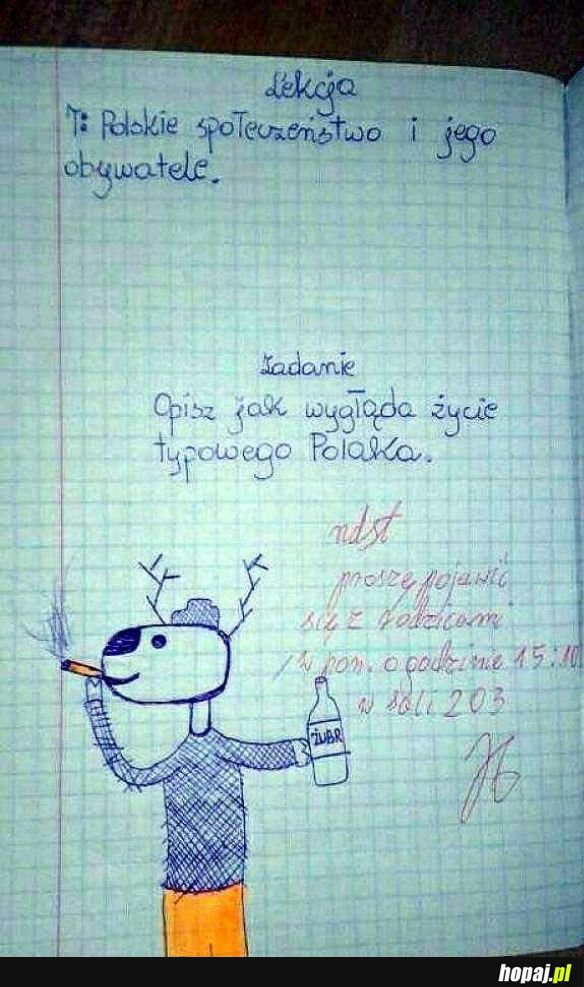 Lekcja
T: Polskie społeczeństwo i jego
obywatele.
Zadanie
Opisz jak wygląda życie
typowego Polaka.
ndst
proszę pojawić
się z rodzicami
w pon. o godzinie 15:10
w sali 203
ŻUBR
hopaj.pl